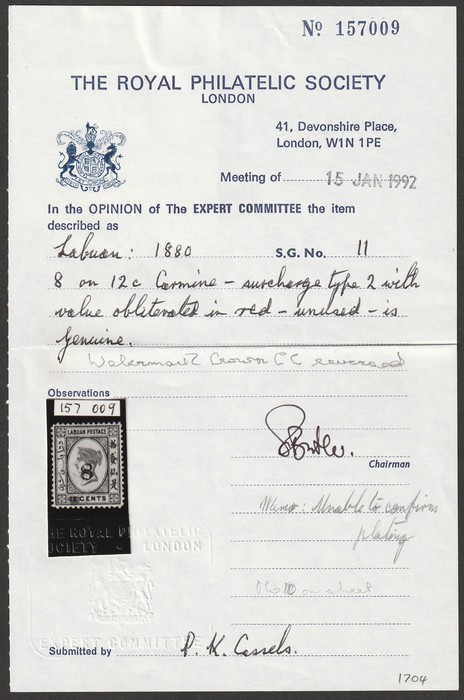 Nº 157009
THE ROYAL PHILATELIC SOCIETY
LONDON
41, Devonshire Place,
London, W1N 1PE
Meeting of 15 JAN 1992
In the OPINION of The EXPERT COMMITTEE the item
described as
Labuan: 1880 S.G. No. 11
8 on 12c Carmine – surcharge type 2 with
value obliterated in red – unused – is
genuine.
Watermark Crown CC reversed
Observations
157 009
LABUAN POSTAGE
8
CENTS
Chairman
Memo: Unable to confirm
plating
No 10 on sheet
THE ROYAL PHILATELIC
SOCIETY LONDON
EXPERT COMMITTEE
Submitted by P. K. Cassels.
1704